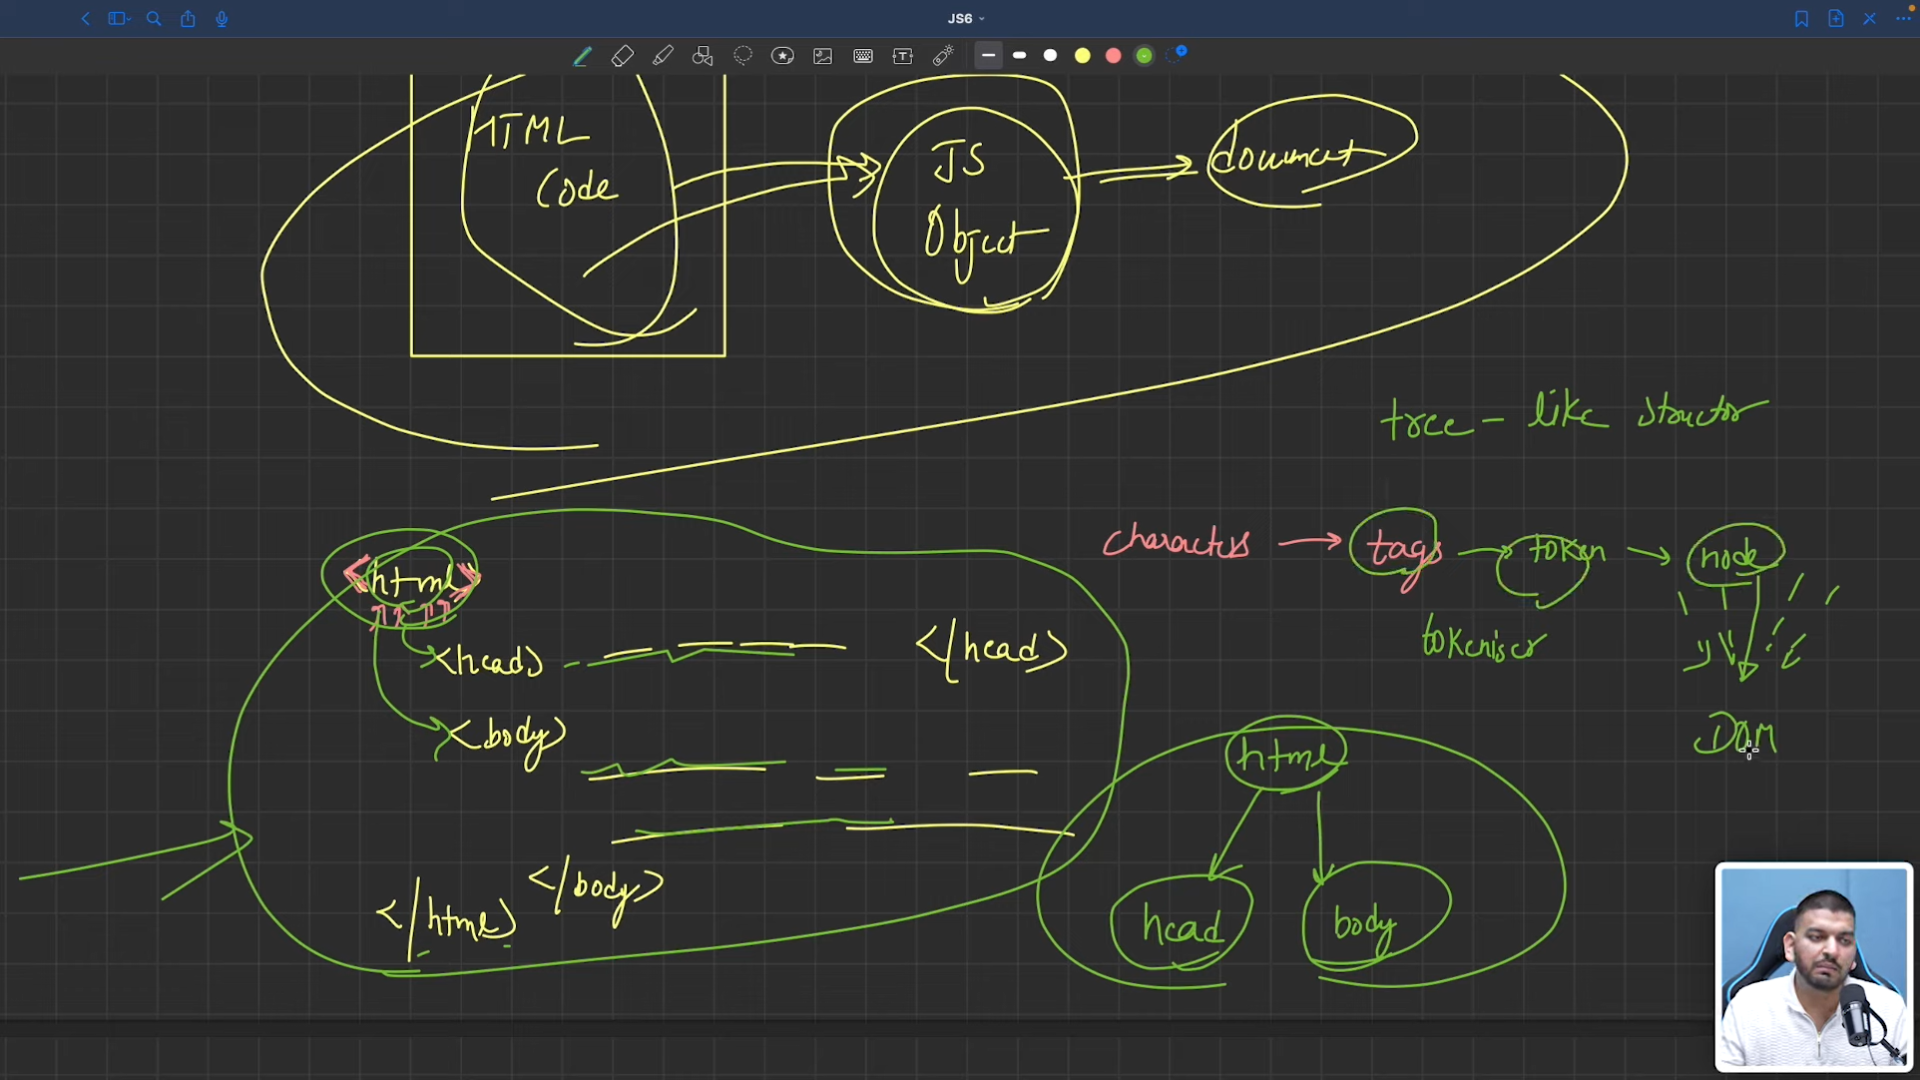 JS6
HTML
Code
JS
Object
document
tree - like structor
characters → tags → token → node
tokeniser
<html>
<head> </head>
<body>
</body>
</html>
DOM
html
head body